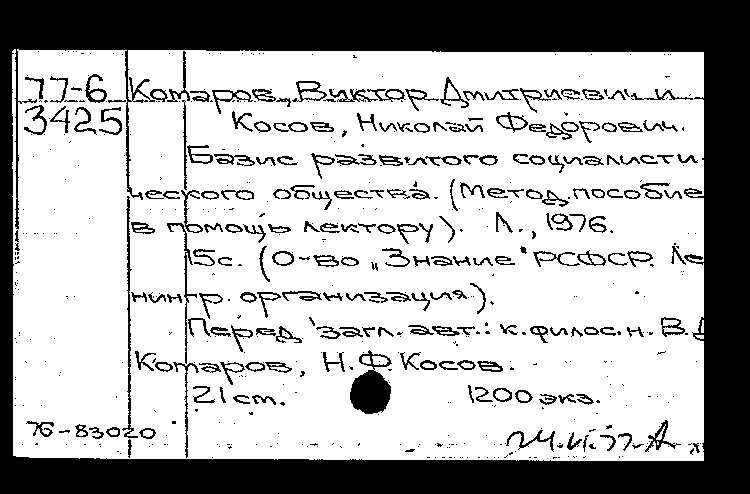 77-6 Комаров, Виктор Дмитриевич и
3425 Косов, Николай Федорович.
Базис развитого социалисти-
ческого общества. (Метод. пособие
в помощь лектору). Л., 1976.
15с. (О-во „Знание" РСФСР. Ле
нингр. организация).
Перед загл. авт.: к.филос.н. В.Д
Комаров, Н.Ф. Косов.
21 cm. 1200 экз.
76-83020